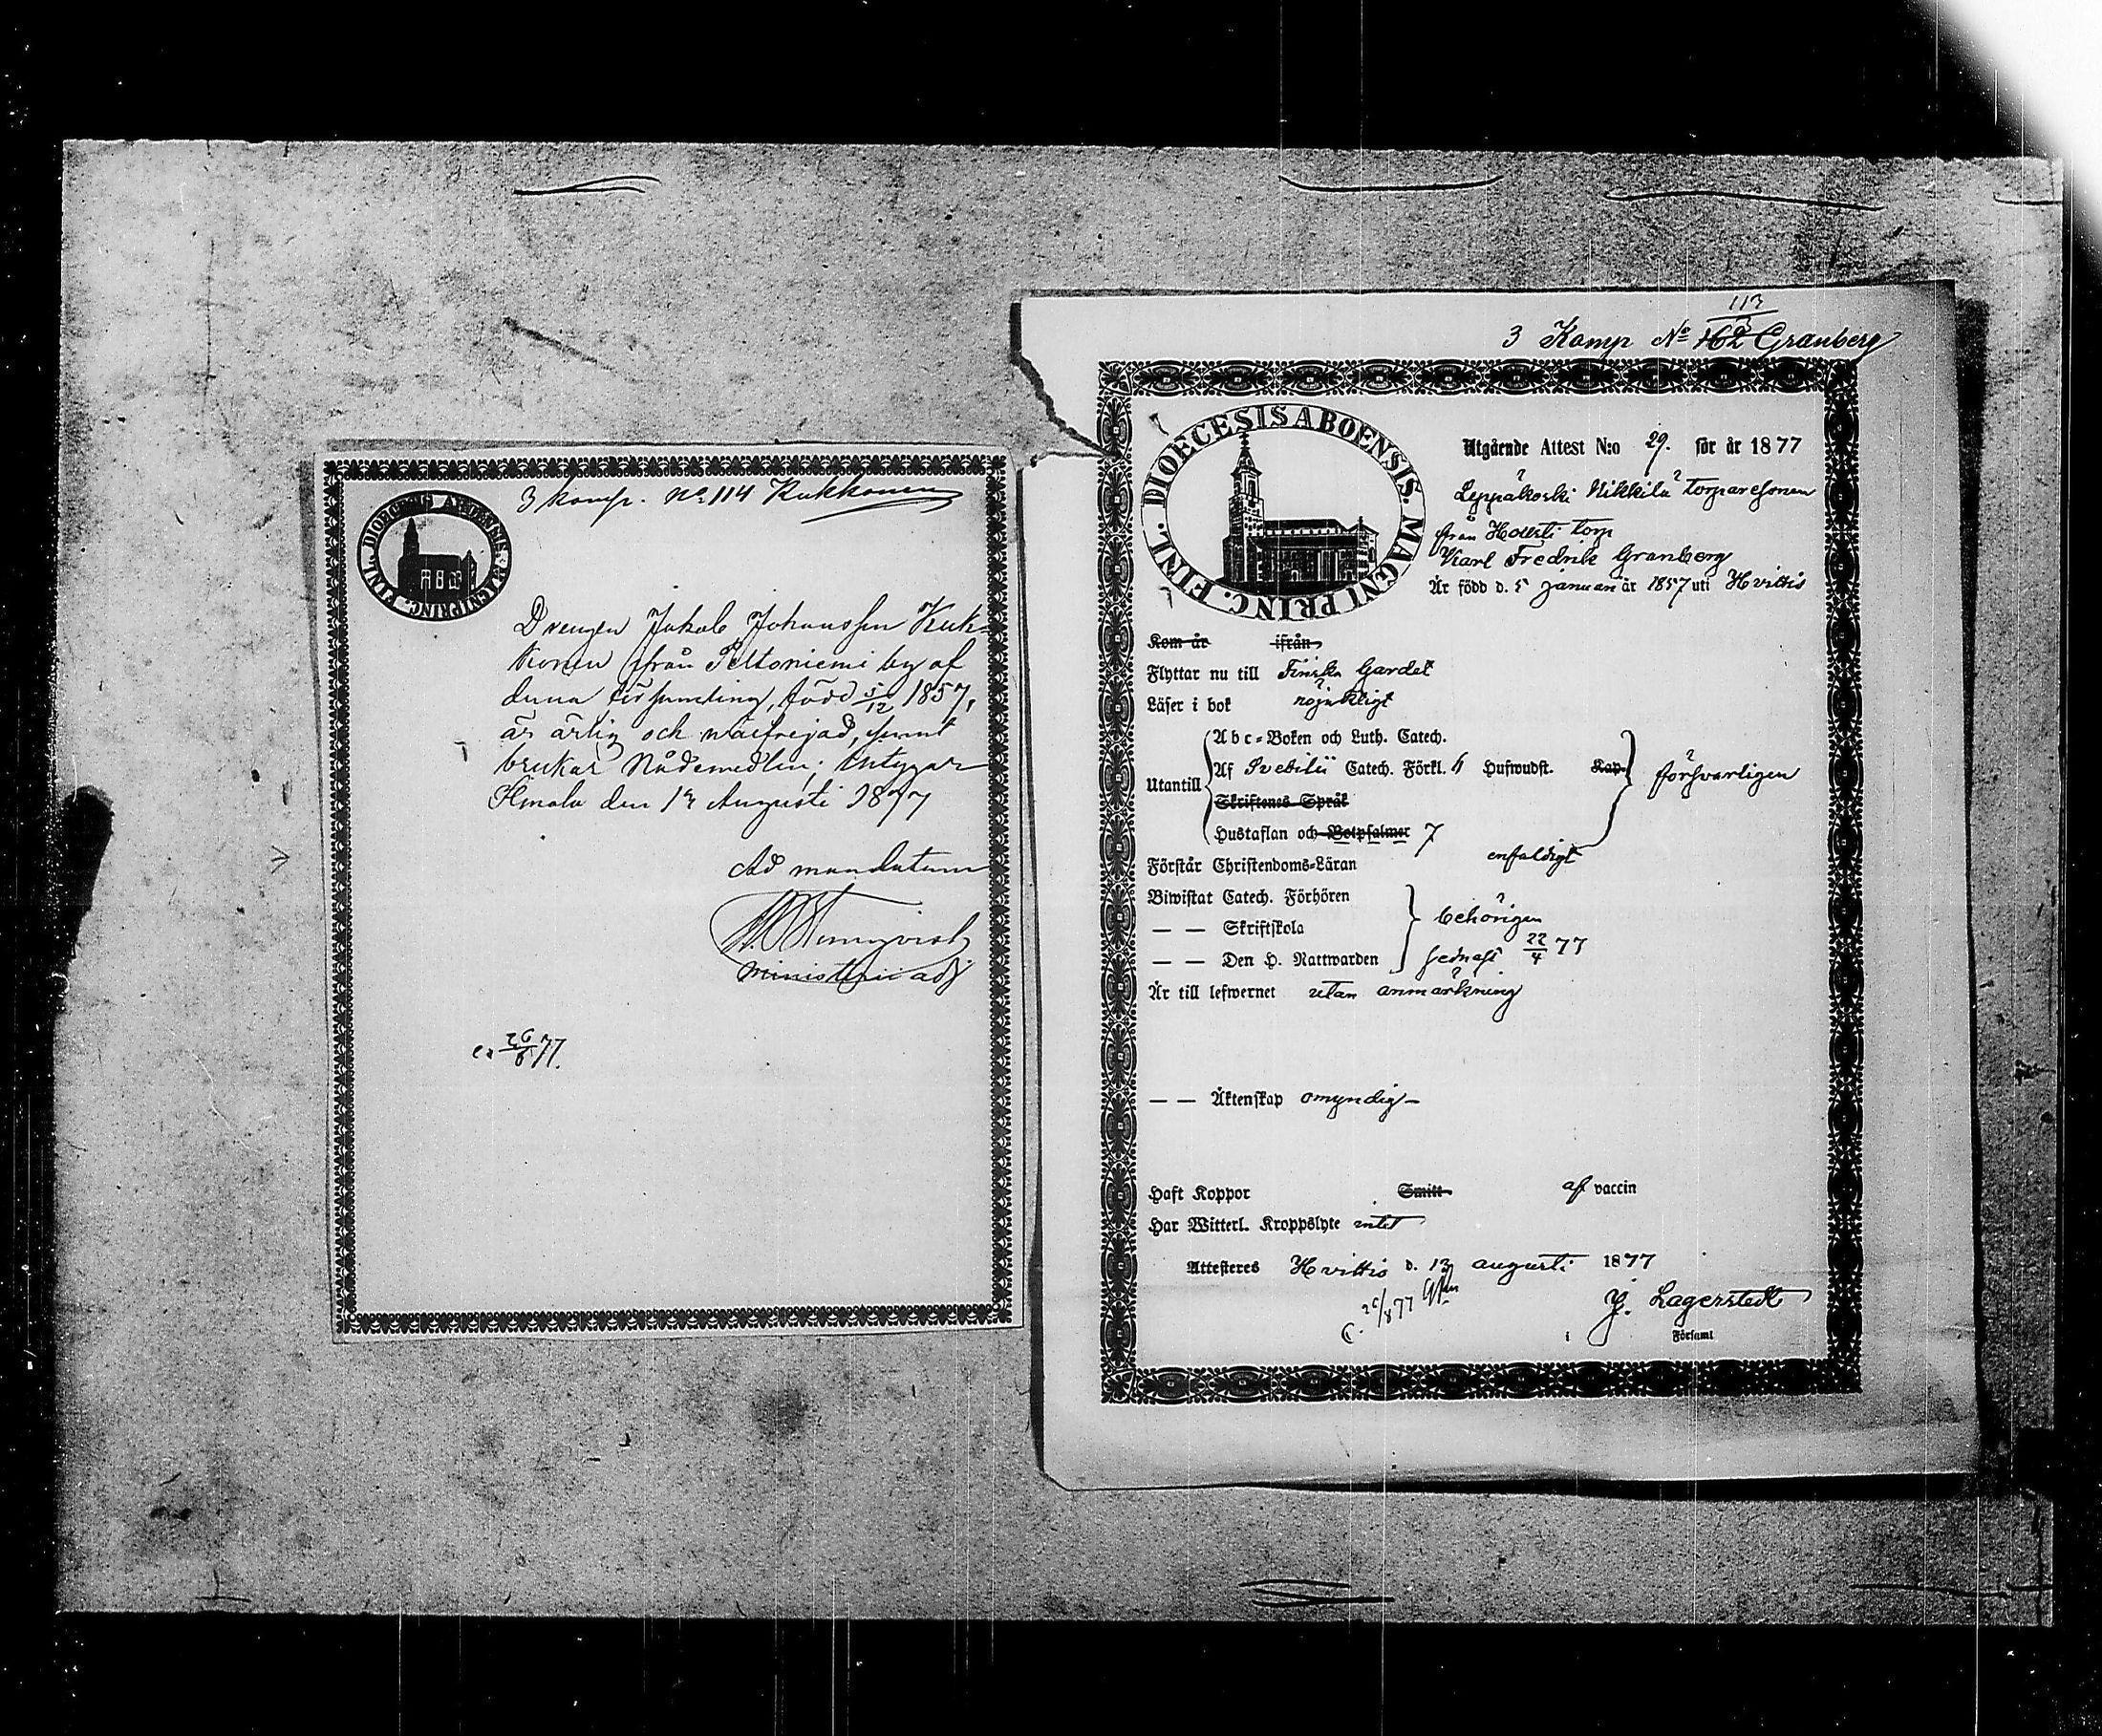 3 komp. No 114 Kukkonen
DIOECESIS ABOENSIS. MAGNI PRINC. FINL.
Drengen Jakob Johansson Kuk-
konen från Peltoniemi by af
denna församling, född 5/12 1857,
är ärlig och välfrejdad, samt
brukar Nådemedlen; intygar
den 13 Augusti 1877
Ad mandatum
ministerii adj
26/8 77.
113
3 Komp No 162 Granberg
DIOECESIS ABOENSIS. MAGNI PRINC. FINL.
Utgående Attest N:o 29. för år 1877
Leppäkoski Nikkilä torparesonen
från torp
Karl Fredrik Granberg
Är född d. 5 januari år 1857 uti Hvittis
Kom år ifrån
Flyttar nu till Finska Gardet
Läser i bok nöjaktligt
Abc-Boken och Luth. Catech.
Utantill Af Svebilii Catech. Förkl. 4 Hufwudst. Kap. försvarligen
Skriftenes Språk
Hustaflan och Botpsalmer 7
Förstår Christendoms-Läran enfaldigt
Biwistat Catech. Förhören
— — Skriftskola behörigen
— — Den H. Nattwarden sednast 22/4 77
Är till lefwernet utan anmärkning
— — Äktenskap omyndig —
Haft Koppor Smitt af vaccin
Har Witterl. Kroppslyte intet
Attesteres Hvittis d. 13 augusti 1877
C. 26/8 77
J. Lagerstedt
i Församl